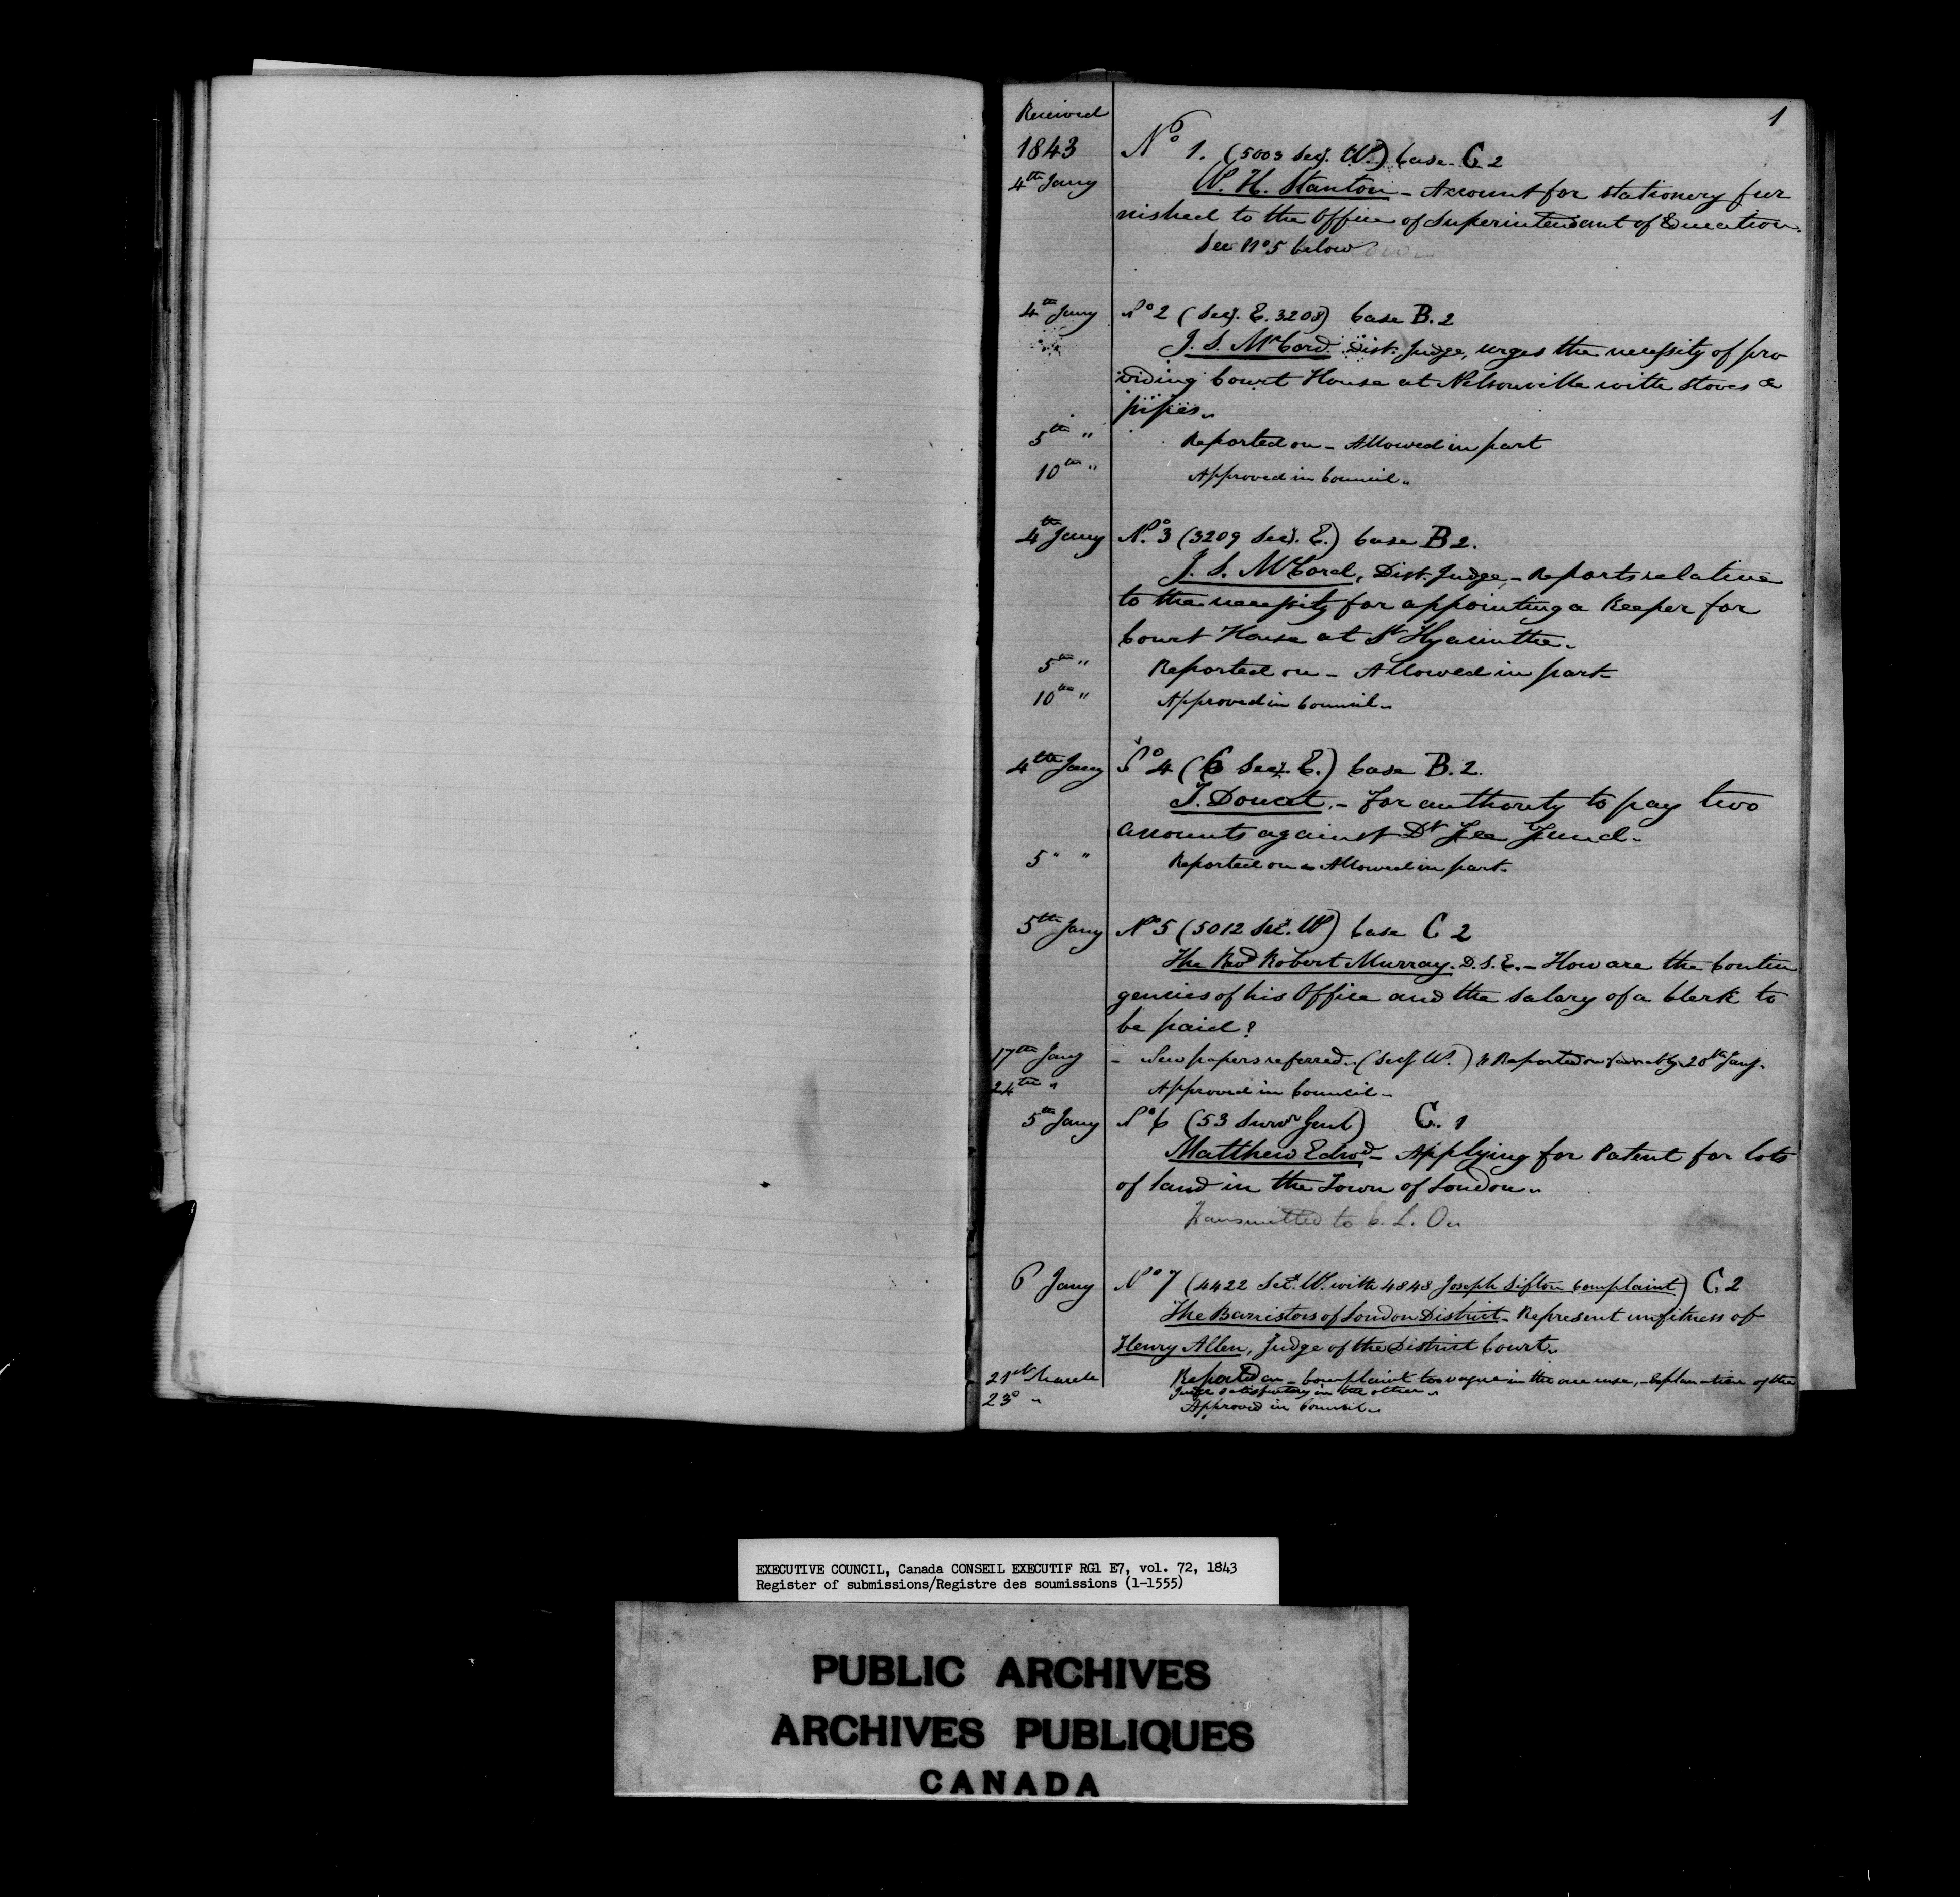 1
Received
1843
No 1. (5003 Secy. W.) Case C 2
4th Jany W. H. Stanton - Account for stationery fur
nished to the Office of Superintendant of Education.
See No 5 below
4th Jany No 2 (Secy. E. 3208) Case B. 2
J. S. McCord Dist. Judge, urges the necessity of pro
viding Court House at Nelsonville with stoves &
pipes.
5th " Reported on - Allowed in part
10th " Approved in Council.
4th Jany No. 3 (3209 Secy. E.) Case B 2.
J. S. McCord, Dist. Judge, - Reports relative
to the necessity for appointing a Keeper for
Court House at St Hyacinthe.
5th " Reported on - Allowed in part
10th " Approved in Council.
4th Jany No 4 (6 Secy. E.) Case B. 2.
T. Doucet. - For authority to pay two
accounts against Dt Fee Fund.
5 " " Reported on - Allowed in part.
5th Jany No 5 (5012 Secy. W) Case C 2
The Revd Robert Murray. D. S. E. - How are the Contin
gencies of his Office and the salary of a Clerk to
be paid?
17th Jany - New papers referred. (Secy W.) Reported on favorably 20th Jany.
24th " Approved in Council -
5th Jany No 6 (53 Survr Genl) C. 1
Matthew Edwd - Applying for Patent for lots
of land in the Town of London.
Transmitted to C. L. On
6 Jany No 7 (4422 Secy. W. with 4848 Joseph Sifton Complaint) C. 2
The Barristers of London District - Represent unfitness of
Henry Allen, Judge of the District Court.
21st March Reported on - Complaint too vague in the one case, - Explanation of the
Judge satisfactory in the other.
23d " Approved in Council.
EXECUTIVE COUNCIL, Canada CONSEIL EXECUTIF RG1 E7, vol. 72, 1843
Register of submissions/Registre des soumissions (1-1555)
PUBLIC ARCHIVES
ARCHIVES PUBLIQUES
CANADA